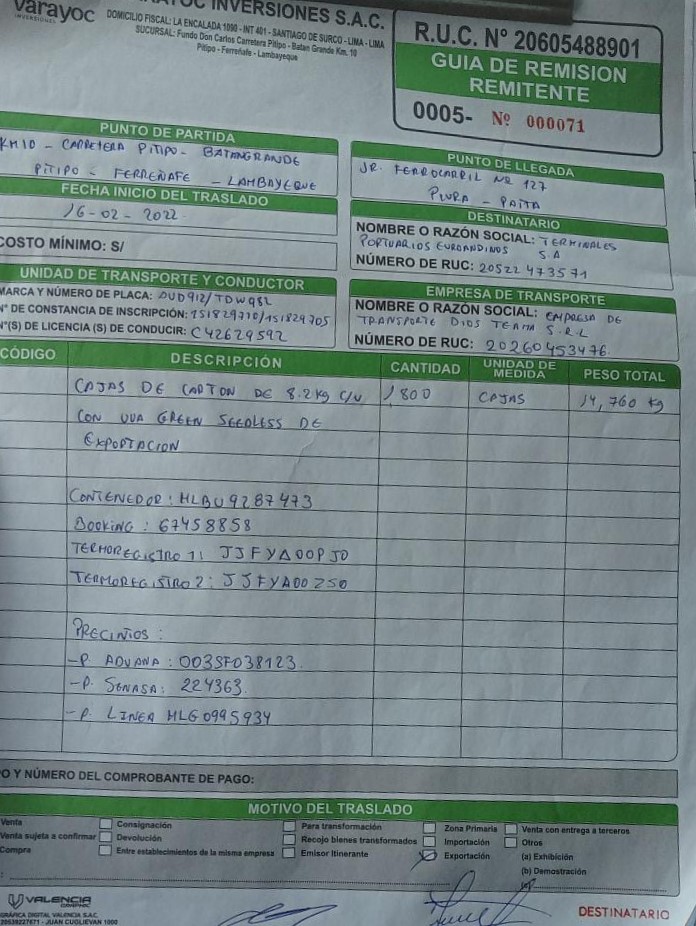 varayoc
INVERSIONES
INVERSIONES S.A.C.
DOMICILIO FISCAL: LA ENCALADA 1090 - INT 401 - SANTIAGO DE SURCO - LIMA - LIMA
SUCURSAL: Fundo Don Carlos Carretera Pitipo - Batan Grande Km. 10
Pitipo - Ferreñafe - Lambayeque
R.U.C. N° 20605488901
GUIA DE REMISION
REMITENTE
0005- Nº 000071
PUNTO DE PARTIDA
KM10 - CARRETERA PITIPO - BATANGRANDE
PITIPO - FERREÑAFE - LAMBAYEQUE
FECHA INICIO DEL TRASLADO
16-02-2022
COSTO MÍNIMO: S/
PUNTO DE LLEGADA
JR. FERROCARRIL NR 127
PIURA - PAITA
DESTINATARIO
NOMBRE O RAZÓN SOCIAL: TERMINALES
PORTUARIOS EUROANDINOS S.A
NÚMERO DE RUC: 20522473571
UNIDAD DE TRANSPORTE Y CONDUCTOR
MARCA Y NÚMERO DE PLACA:
N° DE CONSTANCIA DE INSCRIPCIÓN: 151829710/151829705
N°(S) DE LICENCIA (S) DE CONDUCIR: C42629592
EMPRESA DE TRANSPORTE
NOMBRE O RAZÓN SOCIAL: EMPRESA DE
TRANSPORTE DIOS TE AMA S.R.L
NÚMERO DE RUC: 20260453476
CÓDIGO DESCRIPCIÓN CANTIDAD UNIDAD DE MEDIDA PESO TOTAL
CAJAS DE CARTON DE 8.2 Kg C/U 1800 CAJAS 14,760 Kg
CON UVA GREEN SEEDLESS DE
EXPORTACION
CONTENEDOR: HLBU9287473
BOOKING: 67458858
TERMOREGISTRO 1: JJFYA00PJ0
TERMOREGISTRO 2: JJFYA00Z50
PRECINTOS:
-P ADUANA: 003SF038123
-P. SENASA: 224363
-P. LINEA HLG0995934
O Y NÚMERO DEL COMPROBANTE DE PAGO:
MOTIVO DEL TRASLADO
Venta
Venta sujeta a confirmar
Compra
Consignación
Devolución
Entre establecimientos de la misma empresa
Para transformación
Recojo bienes transformados
Emisor Itinerante
Zona Primaria
Importación
Exportación
Venta con entrega a terceros
Otros
(a) Exhibición
(b) Demostración
VALENCIA
GRÁFICA DIGITAL VALENCIA S.A.C.
20539227671 - JUAN CUGLIEVAN 1000
DESTINATARIO